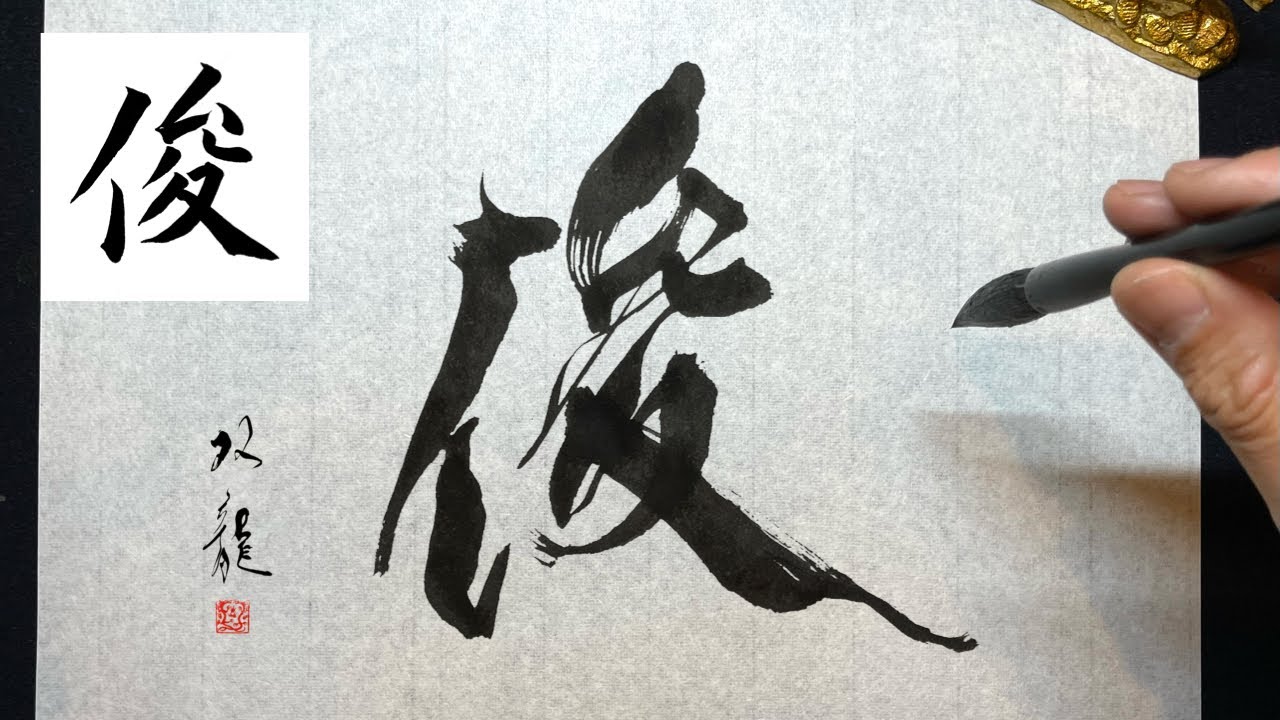 俊
俊
双龍